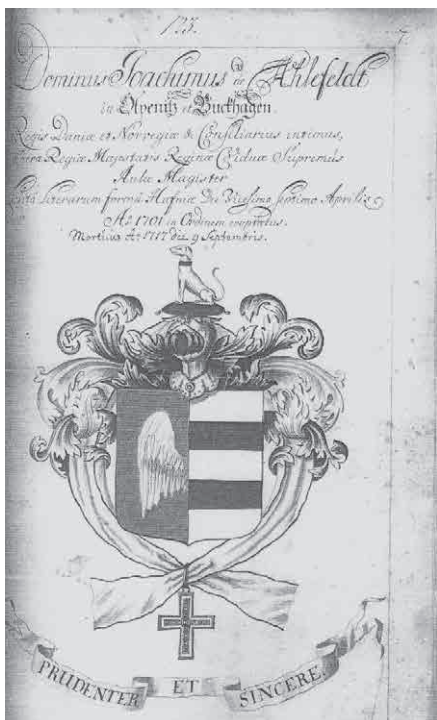 133.
7.
Dominus Joachimus de Ahlefeldt
in Olpenitz et Buckhagen.
Regis Daniæ et Norvegiæ &c Consiliarius intimus,
Regiæ Majestatis Reginæ Viduæ Supremus
Aulæ Magister
Literarum forma Hafniæ Die Vicesimo Septimo Aprilis
Aō 1701 in Ordinem cooptatus.
Mortuus Aō 1717 die 9 Septembris.
PRUDENTER ET SINCERE.